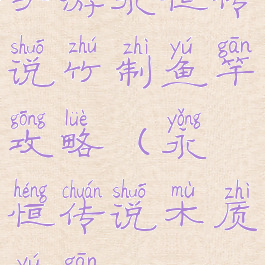 手游永恒传
shuō zhú zhì yú gān
说竹制鱼竿
gōng lüè yǒng
攻略（永
héng chuán shuō mù zhì
恒传说木质
yú gān